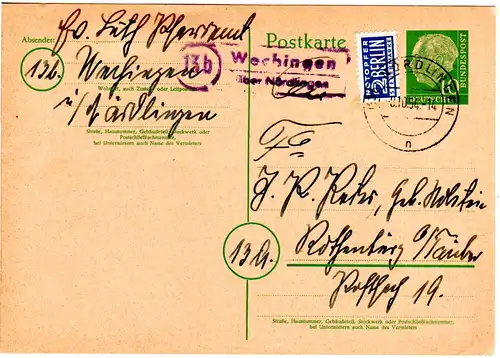 Absender:
Ev. Luth Pfarramt
13b
Wechingen
Wohnort, auch Zustell- oder Leitpostamt
ü/Nördlingen
Straße, Hausnummer, Gebäudeteil, Stockwerk oder
Postschließfachnummer,
bei Untermietern auch Name des Vermieters
Postkarte
13b
Wechingen
über Nördlingen
NOTOPFER
2 BERLIN
STEUERMARKE
DEUTSCHE
BUNDESPOST
NÖRDLINGEN
n
Fa
J. P. Peter,
13a.
Rothenburg Tauber
Postfach 19.
Straße, Hausnummer, Gebäudeteil, Stockwerk oder Postschließfachnummer,
bei Untermietern auch Name des Vermieters